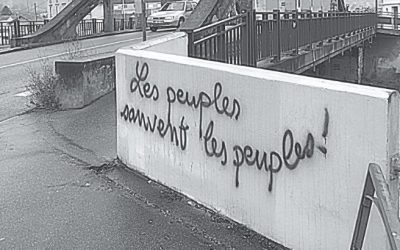 Les peuples
sauvent les peuples!